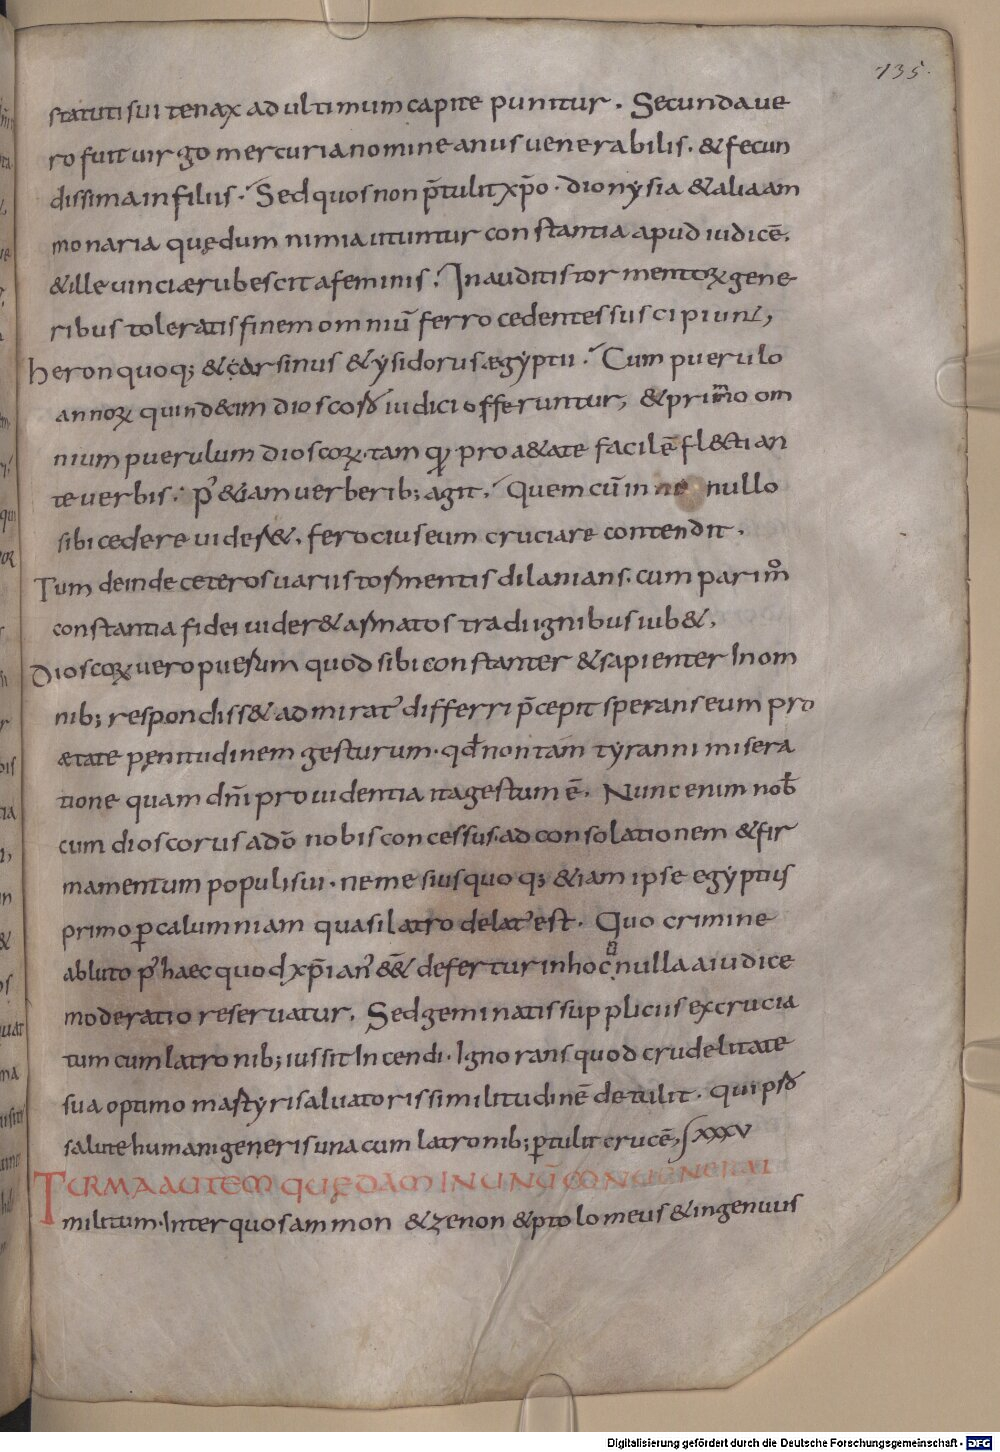 135.
statuti sui tenax ad ultimum capite punitur. Secunda ue
ro fuit uirgo mercuria nomine anus uenerabilis. & fecun
dissima in filiis. Sed quos non p̄tulit xp̄o. dionysia & alia am
monaria quędum nimia utuntur constantia apud iudicē.
& ille uinci ærubescit a feminis. Inauditis tormentoꝝ gene
ribus toleratis finem omniū ferro cedentes suscipiunt,
heron quoq; & çarsinus & ysidorus ægyptii. Cum puerulo
annoꝝ quindecim dioscoro iudici offeruntur, & primo om
nium puerulum dioscoꝝ. tam qͥ pro a&ate facilē flecti an
te uerbis. p̓ &iam uerberib; agit. Quem cū in ne nullo
sibi cedere uidess&. ferocius eum cruciare contendit.
Tum deinde ceteros uariis tormentis dilanians. cum parim̊
constantia fidei uider& armatos tradi ignibus iub&.
Dioscoꝝ uero puerum quod sibi constanter & sapienter In om
nib; respondiss& admirat̓ differri p̄cepit sperans eum pro
ætate pęnitudinem gesturum. qđ non tam tyranni misera
tione quam dn̄i prouidentia ita gestum ē. Nunc enim nob̄
cum dioscorus a dō nobis concessus. ad consolationem & fir
mamentum populi sui. nemesius quoq; &iam ipse egyptius
primo ꝑ calumniam quasi latro delat̓ est. Quo crimine
abluto p̓ haec quod xp̄ian̓ e&̄ defertur in hoc nulla a iudice
moderatio reseruatur. Sed geminatis suppliciis excrucia
tum cum latronib; iussit Incendi. Ignorans quod crudelitate
sua optimo martyri saluatoris similitudinē detulit. qui pro
salute humani generis una cum latronib; ꝑtulit crucē, xxxv
TURMA AUTEM QUĘDAM IN UNŪ CONUENERAT
militum. Inter quos ammon & zenon & ptolomeus & ingenuus
Digitalisierung gefördert durch die Deutsche Forschungsgemeinschaft - DFG